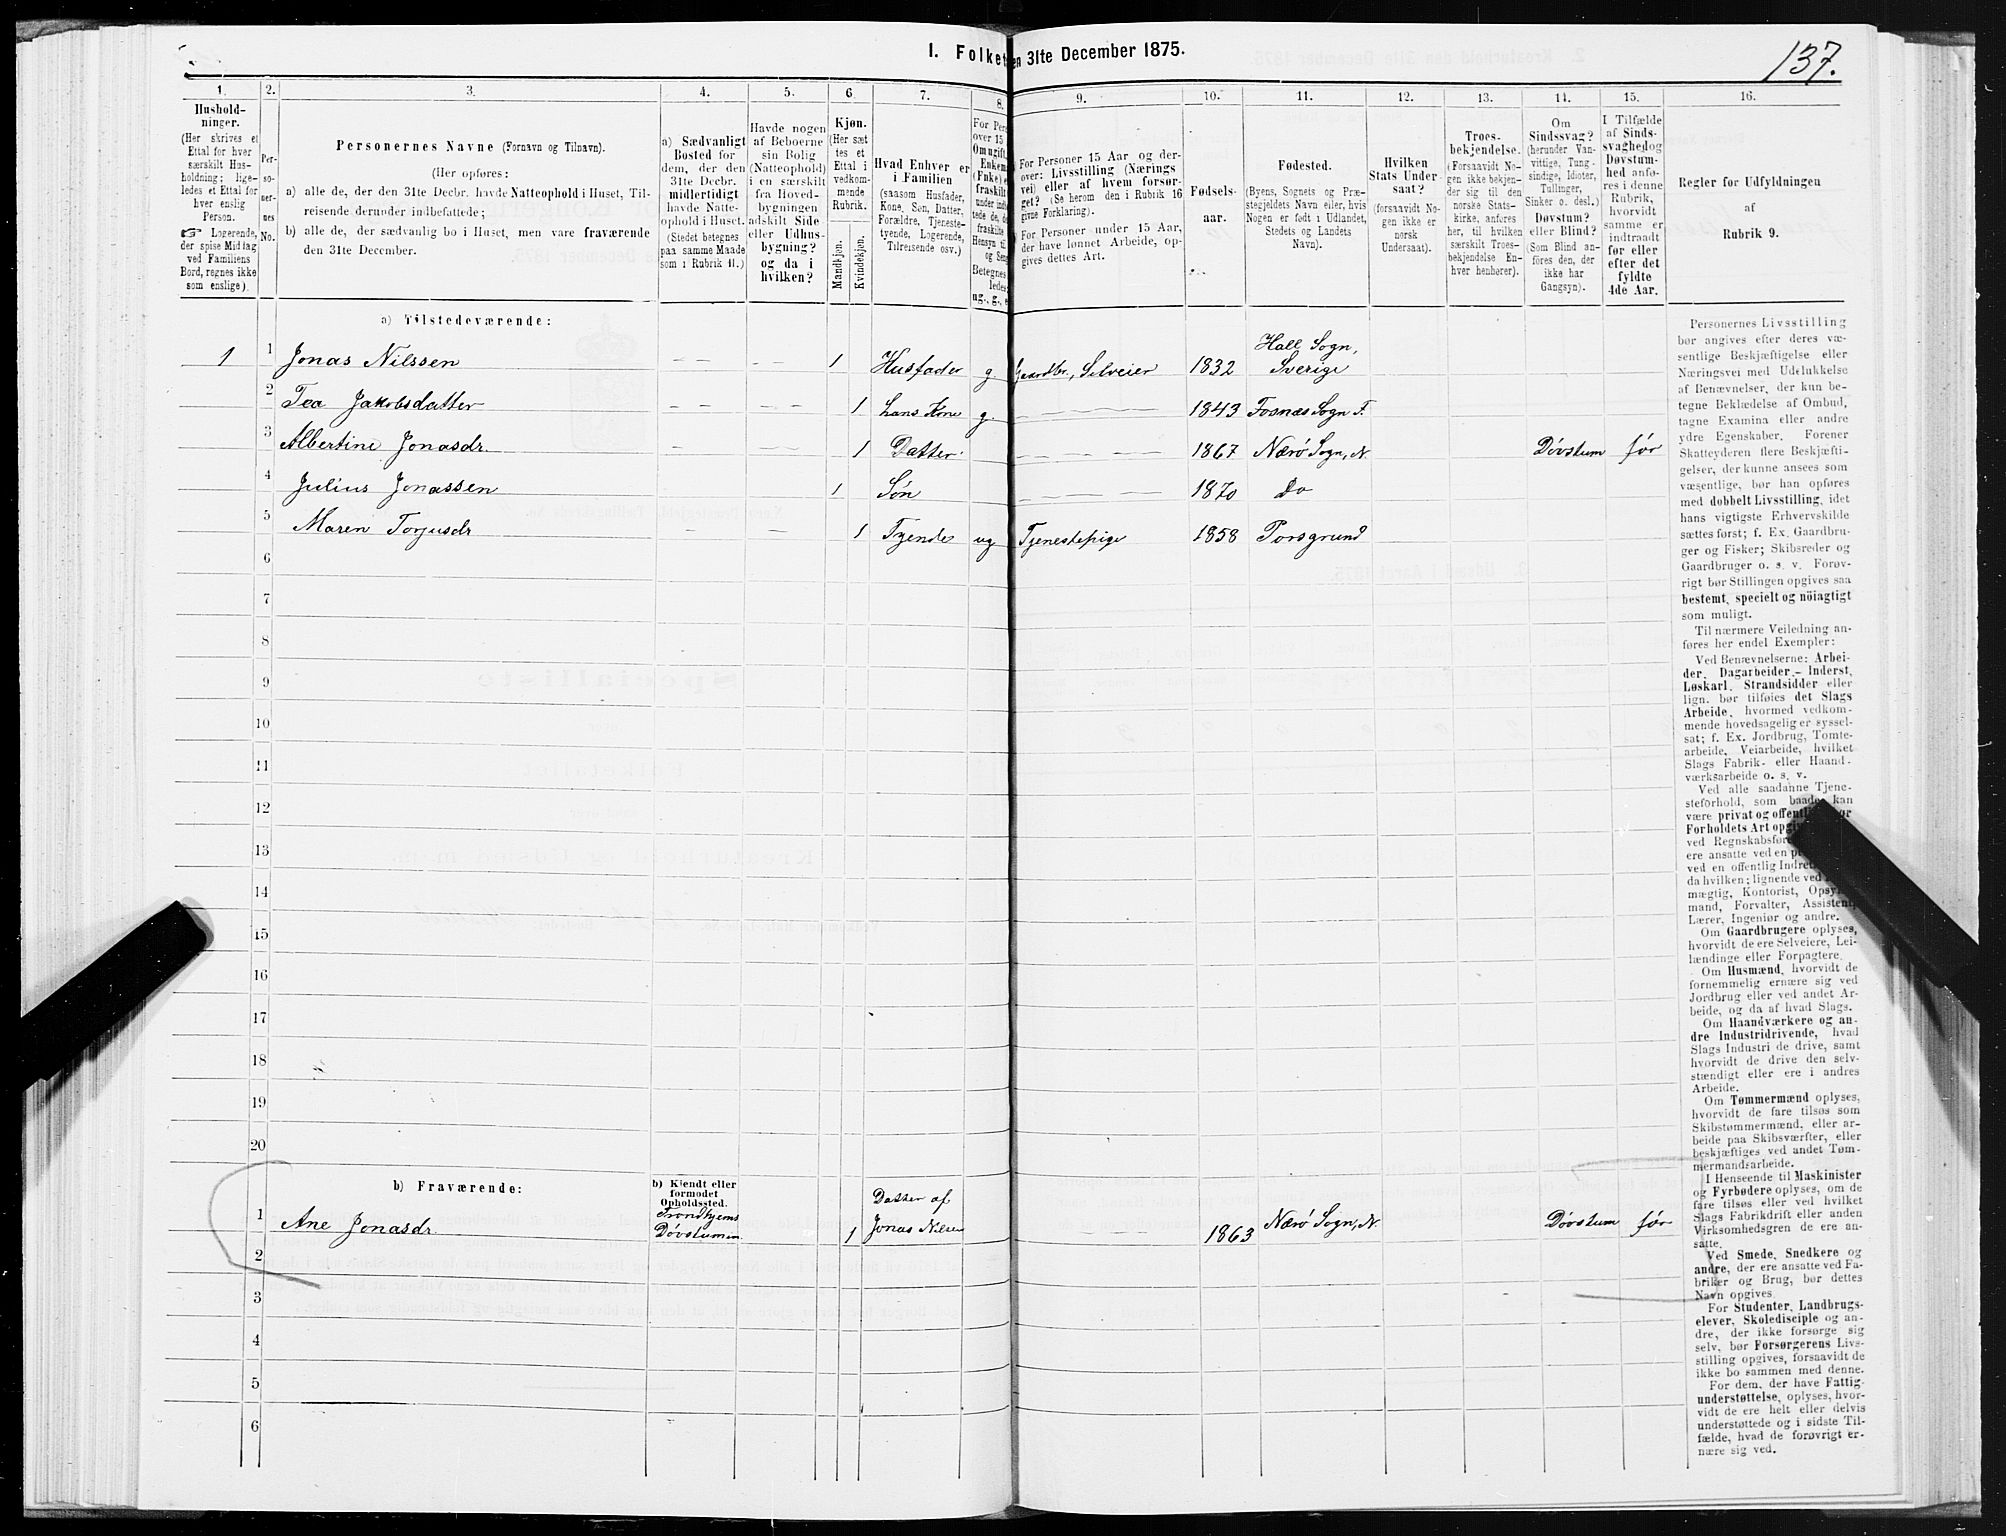 I. Folket en 31te December 1875.
137.
1. 2. 3. 4. 5. 6. 7. 8. 9. 10. 11. 12. 13. 14. 15. 16.
Hushold-
ninger.
(Her skrives et
Ettal for hver
særskilt Hus-
holdning; lige-
ledes et Ettal for
hver enslig
Person.
☞ Logerende,
der spise Middag
ved Familiens
Bord, regnes ikke
som enslige).
Per-
so-
ner-
nes
No.
Personernes Navne (Fornavn og Tilnavn).
(Her opføres:
a) alle de, der den 31te Decbr. havde Natteophold i Huset, Til-
reisende derunder indbefattede;
b) alle de, der sædvanlig bo i Huset, men vare fraværende
den 31te December.
a) Sædvanligt
Bosted for
dem, der den
31te Decbr.
midlertidigt
havde Natte-
ophold i Huset.
(Stedet betegnes
paa samme Maade
som i Rubrik 11.)
Havde nogen
af Beboerne
sin Bolig
(Natteophold)
i en særskilt
fra Hoved-
bygningen
adskilt Side-
eller Udhus-
bygning?
og da i
hvilken?
Kjøn.
(Her sæt
tes et
Ettal i
vedkom-
mende
Rubrik.
Mandkjøn.
Kvindekjøn.
Hvad Enhver er
i Familien
(saasom Husfader,
Kone, Søn, Datter,
Forældre, Tjeneste-
tyende, Logerende,
Tilreisende osv.)
For Pers
over 15
Om ugift,
Enkem
(Enke) e
fraskilt
under indb
tede de, de
fraskilte
Hensyn til
og Sen
Betegnes
ledes
ug., g., e
For Personer 15 Aar og der-
over: Livsstilling (Nærings
vei) eller af hvem forsør-
get? (Se herom den i Rubrik 16
givne Forklaring).
For Personer under 15 Aar,
der have lønnet Arbeide, op-
gives dettes Art.
Fødsels-
aar.
Fødested.
(Byens, Sognets og Præ-
stegjeldets Navn eller, hvis
Nogen er født i Udlandet,
Stedets og Landets
Navn).
Hvilken
Stats Under
saat?
(forsaavidt No-
gen ikke er
norsk
Undersaat).
Troes-
bekjendelse.
(Forsaavidt No-
gen ikke bekjen-
der sig til den
norske Stats-
kirke, anføres
her, til hvilken
særskilt Troes-
bekjendelse En-
hver henhører).
Om
Sindssvag?
(herunder Van-
vittige, Tung-
sindige, Idioter,
Tullinger,
Sinker o. desl.)
Døvstum?
eller Blind?
(Som Blind an-
føres den, der
ikke har
Gangsyn).
I Tilfælde
af Sinds-
svaghed og
Døvstum-
hed anfø-
res i denne
Rubrik,
hvorvidt
samme er
indtraadt
før eller
efter det
fyldte
4de Aar.
Regler for Udfyldningen
af
Rubrik 9.
a) Tilstedeværende:
1 1 Jonas Nilssen — — — — 1 Husfader g. Gaardbr., Selveier 1832 Hall Sogn, Sverige
2 Tea Jakobsdatter — — — — 1 hans Kone g. — — — 1843 Fosnæs Sogn T.
3 Albertine Jonasdr. — — — 1 Datter — — — — 1867 Nærø Sogn, N. Døvstum før
4 Julius Jonassen — — — 1 Søn — — — — 1870 Do
5 Maren Torjusdr — — — 1 Tyende ug Tjenestepige 1858 Porsgrund
6
7
8
9
10
11
12
13
14
15
16
17
18
19
20
b) Fraværende:
b) Kjendt eller
formodet
Opholdssted.
1 Ane Jonasdr. Trondhjems Døvstumin. 1 Datter af Jonas Nilsen — — — 1863 Nærø Sogn, N. Døvstum før
2
3
4
5
6
Personernes Livsstilling
bør angives efter deres væ-
sentlige Beskjæftigelse eller
Næringsvei med Udelukkelse
af Benævnelser, der kun be-
tegne Beklædelse af Ombud,
tagne Examina eller andre
ydre Egenskaber. Forener
Skatteyderen flere Beskjæfti-
gelser, der kunne ansees som
væsentlige, bør han opføres
med dobbelt Livsstilling, idet
hans vigtigste Erhvervskilde
sættes først; f. Ex. Gaardbru-
ger og Fisker; Skibsreder og
Gaardbruger o. s. v. Forøv-
rigt bør Stillingen opgives saa
bestemt, specielt og nöiagtigt
som muligt.
Til nærmere Veiledning an-
føres her endel Exempler:
Ved Benævnelserne: Arbei-
der, Dagarbeider - Inderst,
Løskarl, Strandsidder eller
lign. bør tilføies det Slags
Arbeide, hvormed vedkom-
mende hovedsagelig er syssel-
sat; f. Ex. Jordbrug, Tomte-
arbeide, Veiarbeide, hvilket
Slags Fabrik- eller Haand-
værksarbeide o. s. v.
Ved alle saadanne Tjene-
steforhold, som baade kan
være privat og offentlig, bør
Forholdets Art opgi
ved Regnskabsfør
ere ansatte ved en p
ved en offentlig Indret
da hvilken; lignende ved
mægtig, Kontorist, Opsy
mand, Forvalter, Assistent,
Lærer, Ingeniør og andre.
Om Gaardbrugere oplyses,
hvorvidt de ere Selveiere, Lei-
lændinge eller Forpagtere.
Om Husmænd, hvorvidt de
fornemmelig ernære sig ved
Jordbrug eller ved andet Ar-
beide, og da af hvad Slags.
Om Haandværkere og an-
dre Industridrivende, hvad
Slags Industri de drive, samt
hvorvidt de drive den selv-
stændigt eller ere i andres
Arbeide.
Om Tømmermænd oplyses,
hvorvidt de fare tilsøs som
Skibstømmermænd, eller ar-
beide paa Skibsværfter, eller
beskjæftiges ved andet Tøm-
mermandsarbeide.
I Henseende til Maskinister
og Fyrbødere oplyses, om de
fare tilsøs eller ved hvilket
Slags Fabrikdrift eller anden
Virksomhedsgren de ere an-
satte.
Ved Smede, Snedkere og
andre, der ere ansatte ved Fa-
briker og Brug, bør dettes
Navn opgives.
For Studenter, Landbrugs-
elever, Skoledisciple og an-
dre, der ikke forsørge sig
selv, bør Forsørgerens Livs-
stilling opgives, forsaavidt de
ikke bo sammen med denne.
For dem, der have Fattig-
understøttelse, oplyses, hvor-
vidt de ere helt eller delvis
understøttede og i sidste Til-
fælde, hvad de forøvrigt er-
nære sig ved.